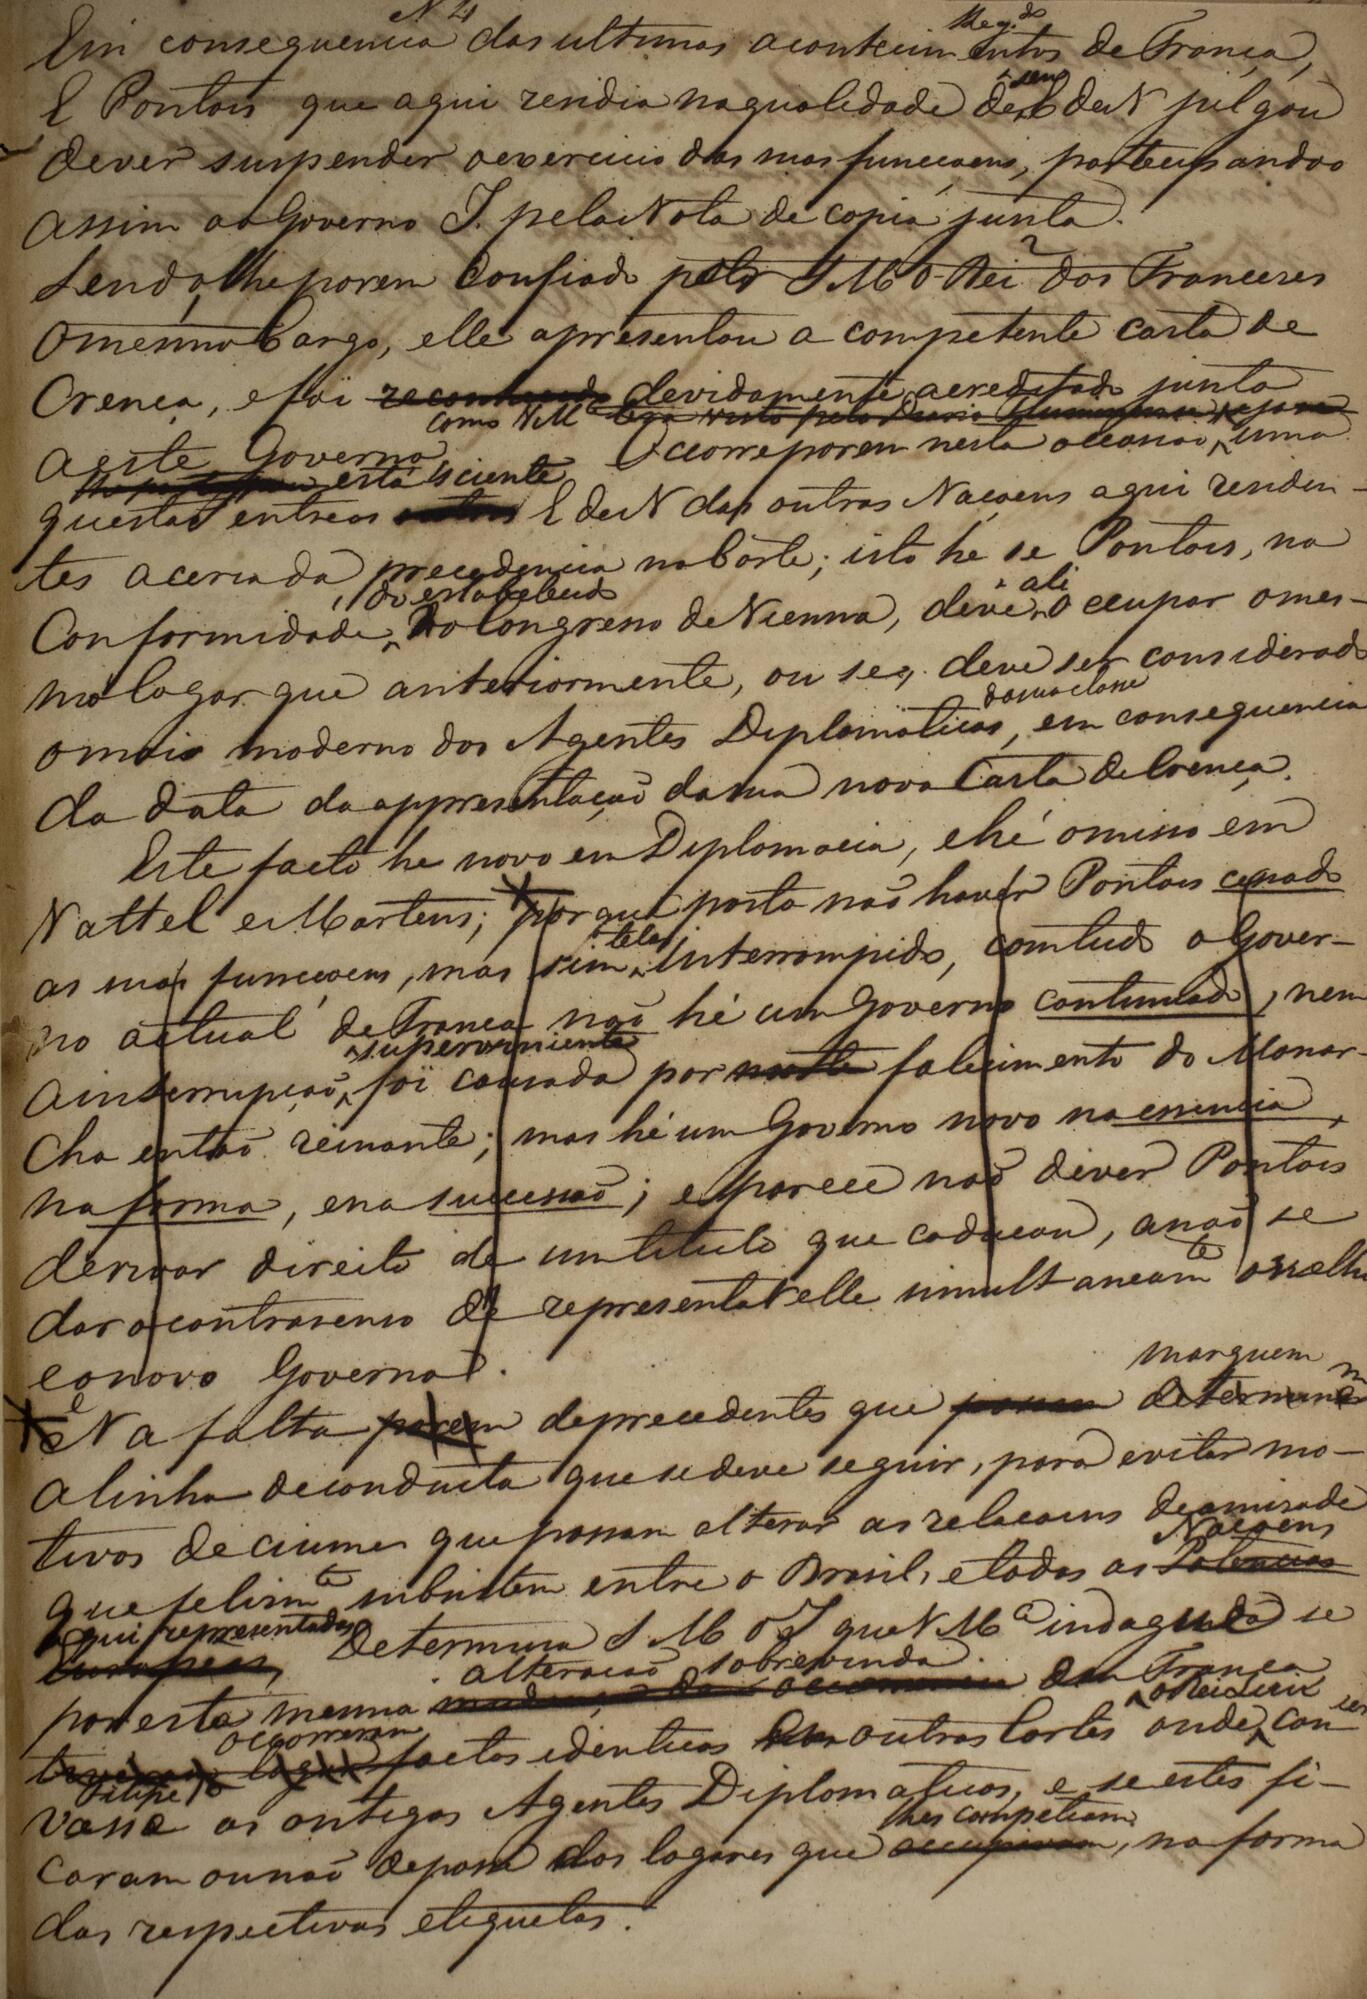 N 4
Em consequencia das ultimos acontecimentos de França,
E Pontois que aqui rendia na qualidade de seu E de N julgou
dever suspender o exercicio das suas funccoens, participando o
assim ao Governo I. pela Nota de copia junta.
Sendo lhe porem confiado pelo S M O Rei dos Franceses
o mesmo Cargo, elle apresentou a competente carta de
Crença, e foi reconhecido devidamente acreditado junto
como V. M.ce terá visto pelo Diario Fluminense
a este Governo Ocorre porem nesta occasião, uma
está sciente
questão entre os E de N das outras Naçoens aqui residen-
tes acerca da precedencia na Côrte; isto he se Pontois, na
do estabelecido ali
Conformidade, do Congresso de Vienna, deve, occupar o mes-
mo lugar que anteriormente, ou se q. deve ser considerado
da sua classe
o mais moderno dos Agentes Diplomaticos, em consequencia
da data da appresentação da sua nova Carta de Crença.
Este facto he novo em Diplomacia, e hé omisso em
Vattel e Martens; por que posto não haver Pontois cessado
telas
as suas funccoens, mas sim, interrompido, comtudo o Gover-
no actual de França não hé um Governo continuado, nem
superveniente
a interrupção, foi causada por morte falecimento do Monar-
cha então reinante; mas hé um Governo novo na essencia,
na forma, e na successão; e parece não dever Pontois
derivar direito de um titulo que caducou, a não se
dar o contrasenso de representar elle simultaneam.te o velho
e o novo Governo.
marquem
e Na falta porem de precedentes que possam determinar
a linha de conducta que se deve seguir, para evitar mo-
tivos de ciumes que possam alterar as relacoens de amisade
Naçoens
que felizm.te subsistem entre o Brasil, e todas as Potencias
aqui representadas
Europeas, Determina S M O I que V M.ce indague se
alteração sobrevinda
por esta mesma mudança de em França
ocorreram o Rei Luiz
tiveram lugar factos identicos em outras Cortes onde, conser
Filipe 1º
vasse os antigos Agentes Diplomaticos, e se estes fi-
lhes competiam
caram ou não de posse dos lugares que occupavam, na forma
das respectivas etiquetas.